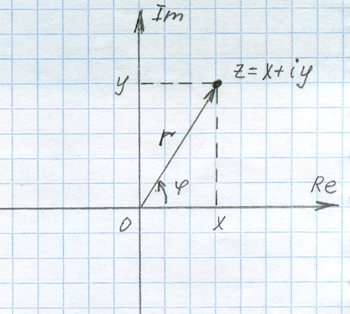 Im
y
z=x+iy
r
φ
Re
0
x